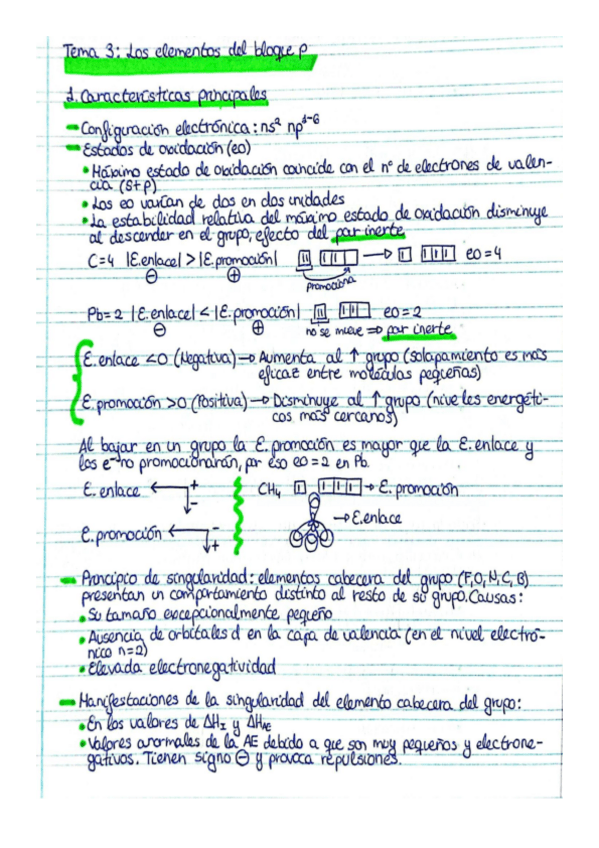 Tema 3: Los elementos del bloque p
1. Características principales
Configuración electrónica: ns² np¹⁻⁶
Estados de oxidación (eo)
• Máximo estado de oxidación coincide con el nº de electrones de valen-
cia (s+p)
• Los eo varían de dos en dos unidades
• La estabilidad relativa del máximo estado de oxidación disminuye
al descender en el grupo, efecto del par inerte
C=4 |E.enlace| > |E.promoción| → eo=4
⊖ ⊕ promociona
Pb=2 |E.enlace| < |E.promoción| eo=2
⊖ ⊕ no se mueve ⇒ par inerte
E.enlace <0 (Negativa) → Aumenta al ↑ grupo (solapamiento es más
eficaz entre moléculas pequeñas)
E.promoción >0 (Positiva) → Disminuye al ↑ grupo (niveles energéti-
cos más cercanos)
Al bajar en un grupo la E.promoción es mayor que la E.enlace y
los e⁻ no promocionarán, por eso eo=2 en Pb.
E.enlace ← + -
CH₄ → E.promoción
→ E.enlace
E.promoción ← - +
Principio de singularidad: elementos cabecera del grupo (F,O,N,C,B)
presentan un comportamiento distinto al resto de su grupo. Causas:
• Su tamaño excepcionalmente pequeño
• Ausencia de orbitales d en la capa de valencia (en el nivel electró-
nico n=2)
• Elevada electronegatividad
Manifestaciones de la singularidad del elemento cabecera del grupo:
• En los valores de ΔH_I y ΔH_AE
• Valores anormales de la AE debido a que son muy pequeños y electrone-
gativos. Tienen signo ⊖ y provoca repulsiones.